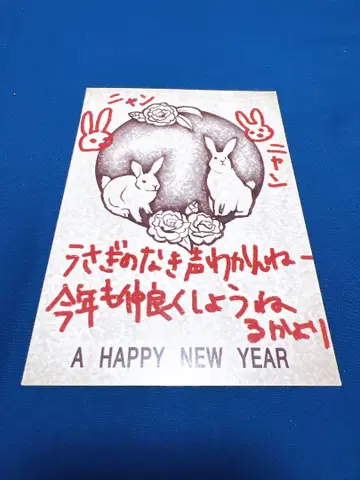 ニャン
ニャン
うさぎのなき声わかんねー
今年も仲良くしようね
るかより
A HAPPY NEW YEAR